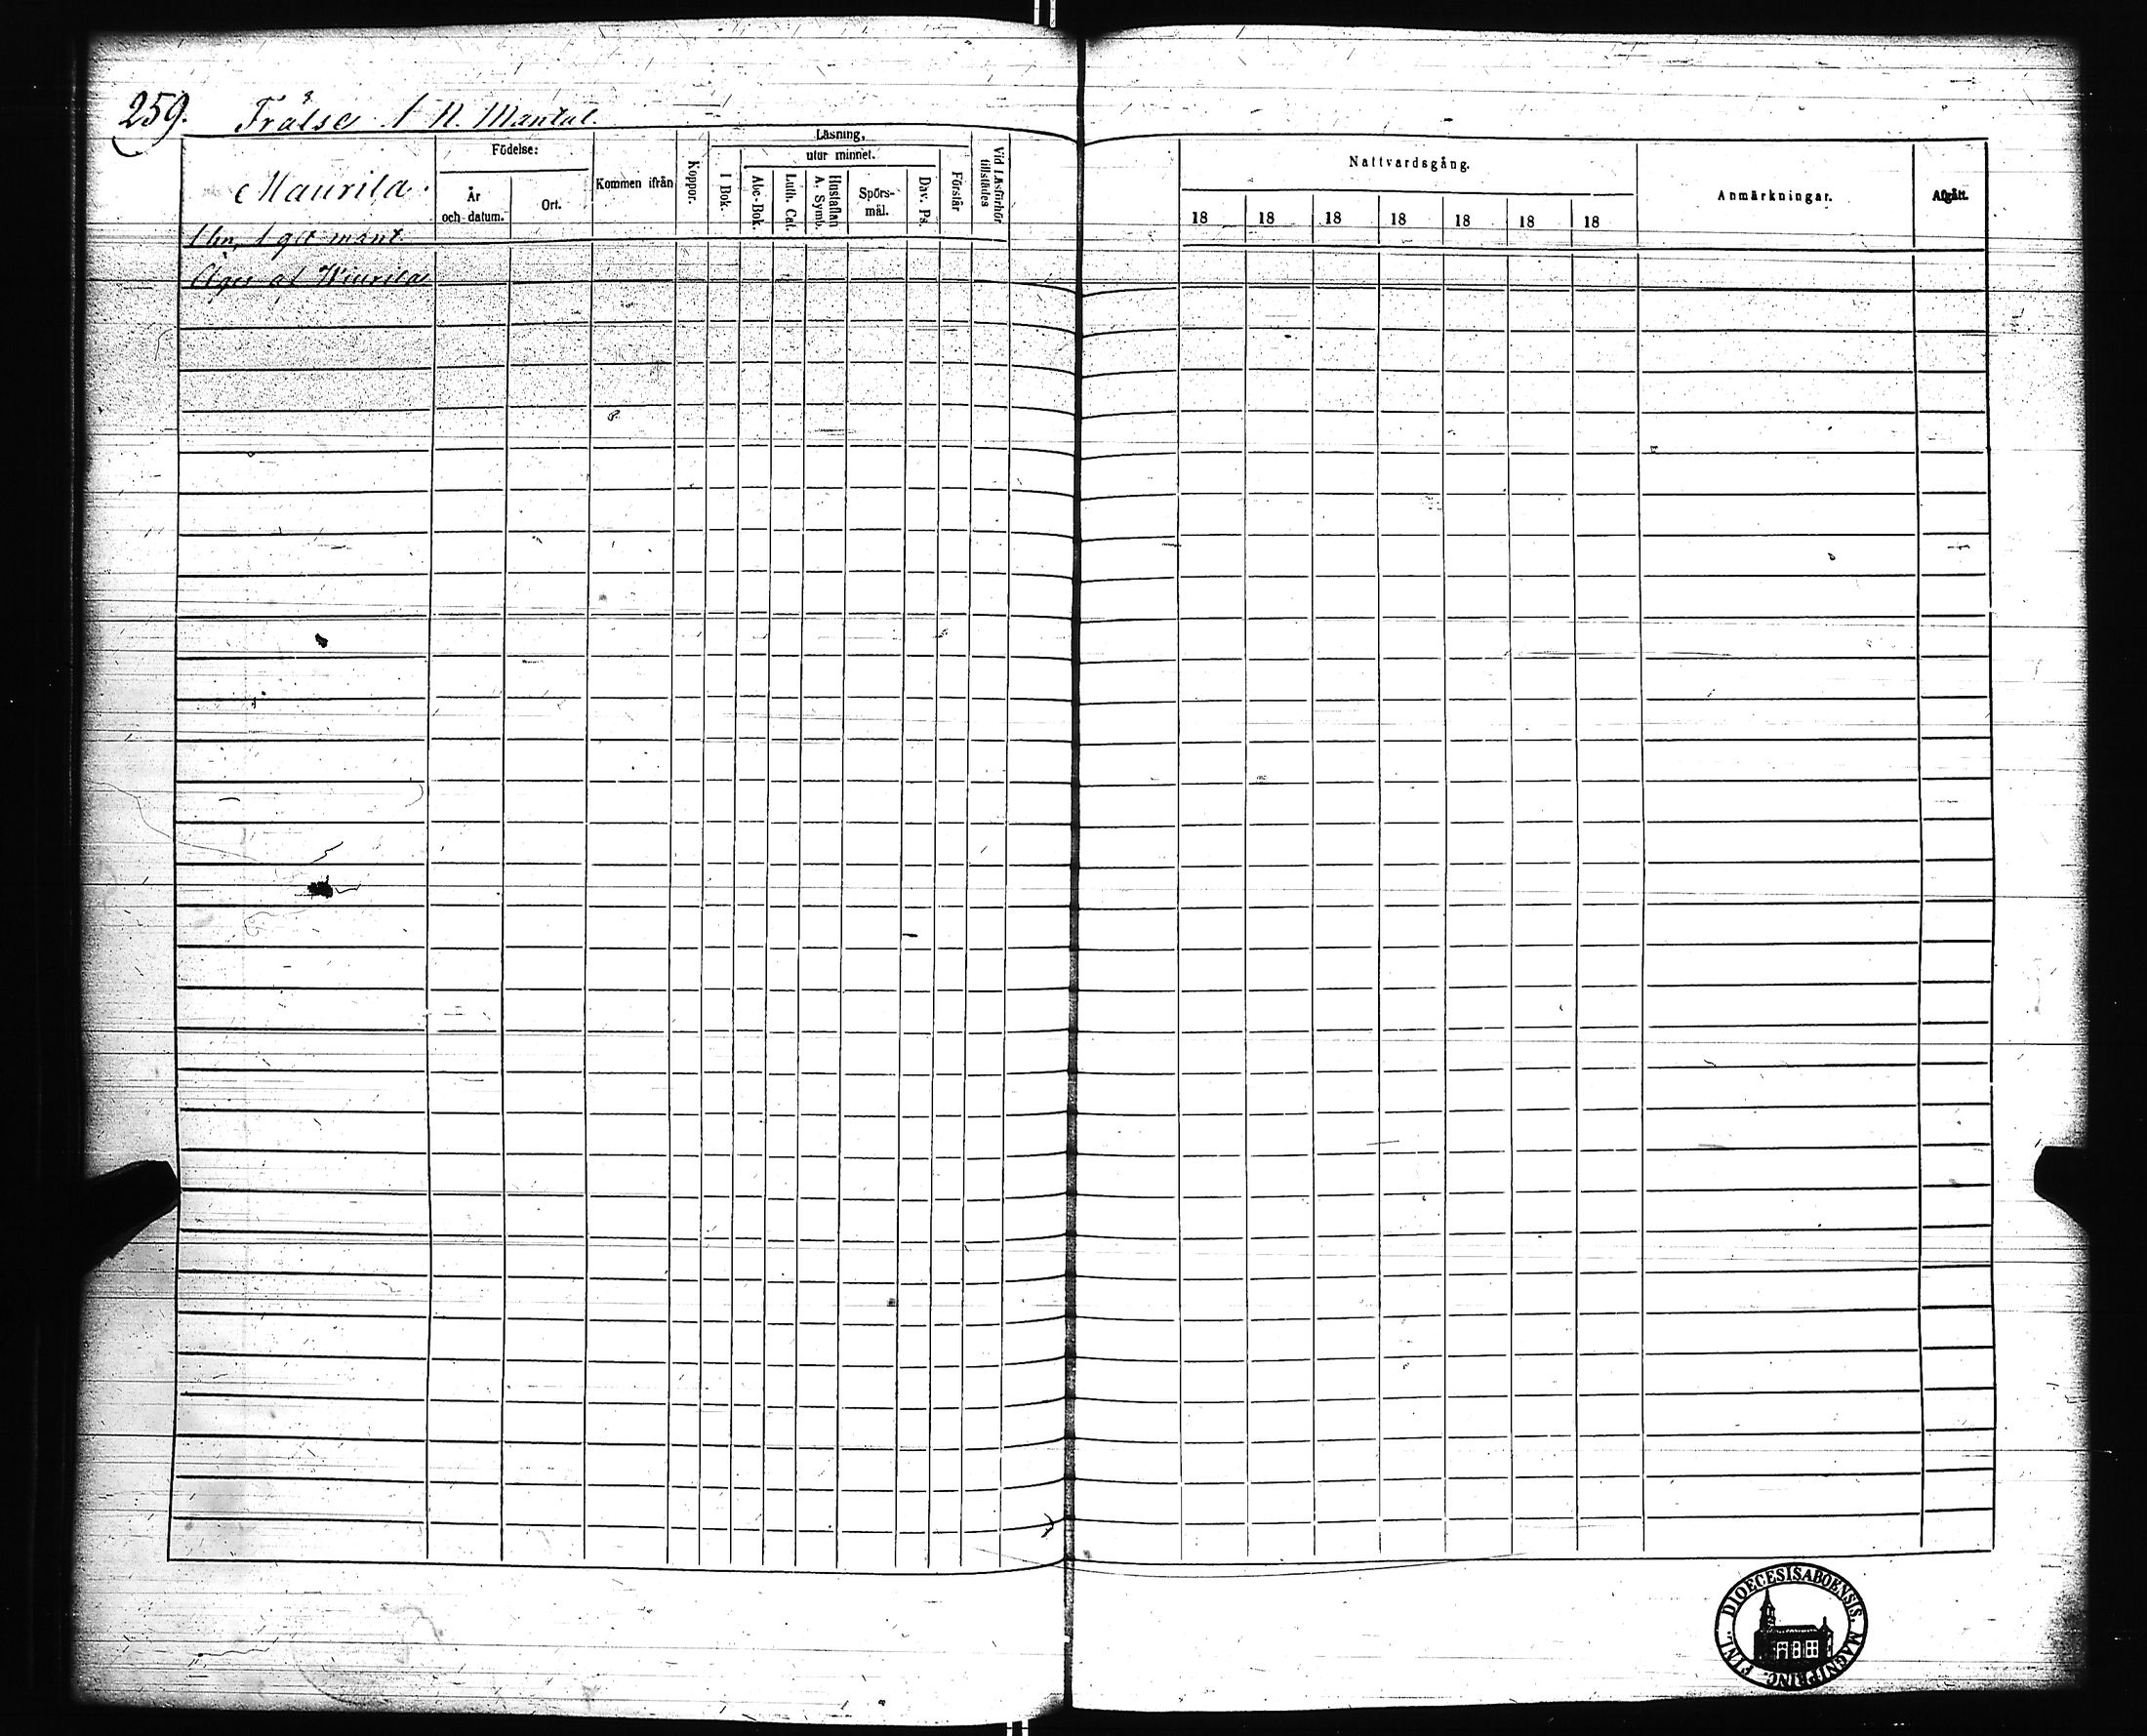 259. Frälse 1 N. Mantal
Maurila.
1 hn, 1 qit mant
Äges af Wiurila
Födelse:
År
och datum.
Ort.
Kommen ifrån
Koppor.
Läsning,
utur minnet.
I Bok.
Abc-Bok.
Luth. Cat.
Hustaflan
A. Symb.
Spörs-
mål.
Dav. Ps.
Förstår
Vid Läsförhör
tillstädes
Nattvardsgång.
18 18 18 18 18 18 18
Anmärkningar.
Afgått.
DIOECESIS ABOENSIS, MAGNI PRINC. FINL.